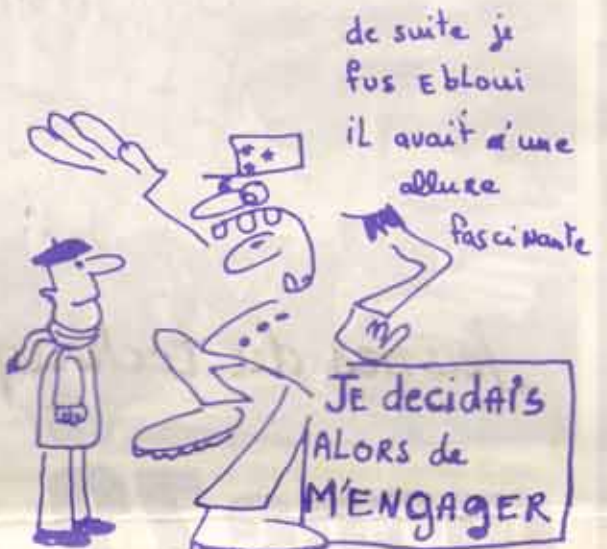 de suite je
fus Ebloui
iL avait d'une
alluRe
fasciNante
JE decidAis
ALORS de
M'ENGAGER